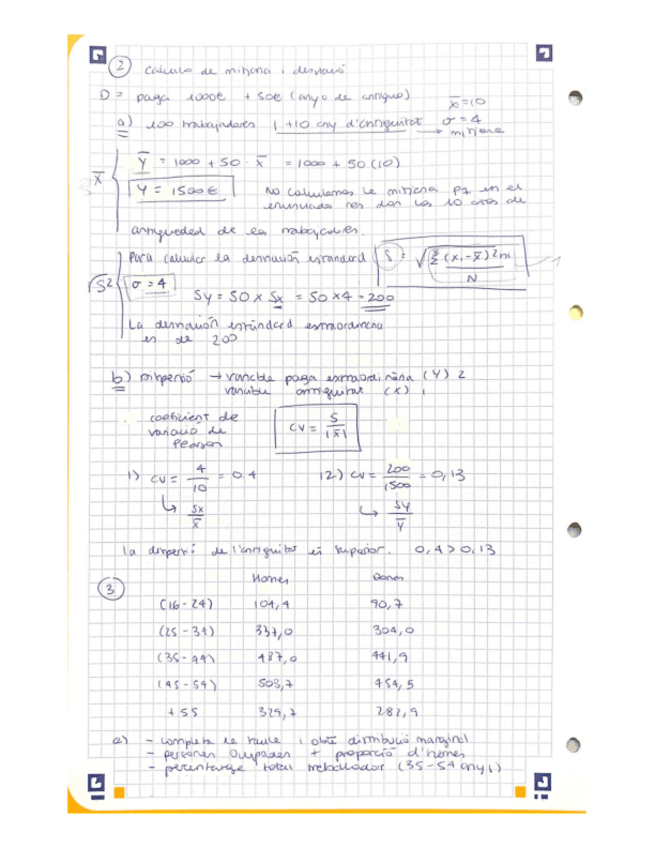 2 calculo de mitjana i desviació
D = paga 1000€ + 50€ (anyo de antiguo)
a) 100 trabajadores i +10 any d'antiguitat → mitjana
x̄ = 10
σ = 4
X̄
Ȳ = 1000 + 50 · X̄ = 1000 + 50 (10)
Y = 1500€
No calculamos la mitjana pq en el
enunciado nos dan los 10 años de
antiguedad de los trabajadores.
Para calcular la desviación estandard S = √ Σ (xi - x̄)² ni / N
S²
σ = 4
Sy = 50 x Sx = 50 x 4 = 200
La desviación estándard extraordinaria
es de 200
b) → variable paga extraordinària (Y) 2
variable antiguitat (X) 1
coeficient de
variació de
Pearson
CV = S / |x̄|
1) CV = 4 / 10 = 0.4
12) CV = 200 / 1500 = 0,13
↳ Sx / x̄
↳ Sy / Ȳ
la dispersió de l'antiguitat és superior. 0,4 > 0,13
3
Homes Dones
(16 - 24) 104,4 90,7
(25 - 34) 337,0 304,0
(35 - 44) 487,0 441,9
(45 - 54) 503,7 454,5
+ 55 329,7 282,9
a) - completa la taula i obté distribució marginal
- persones ocupades + proporció d'homes
- percentatge total treballador (35 - 54 anys)